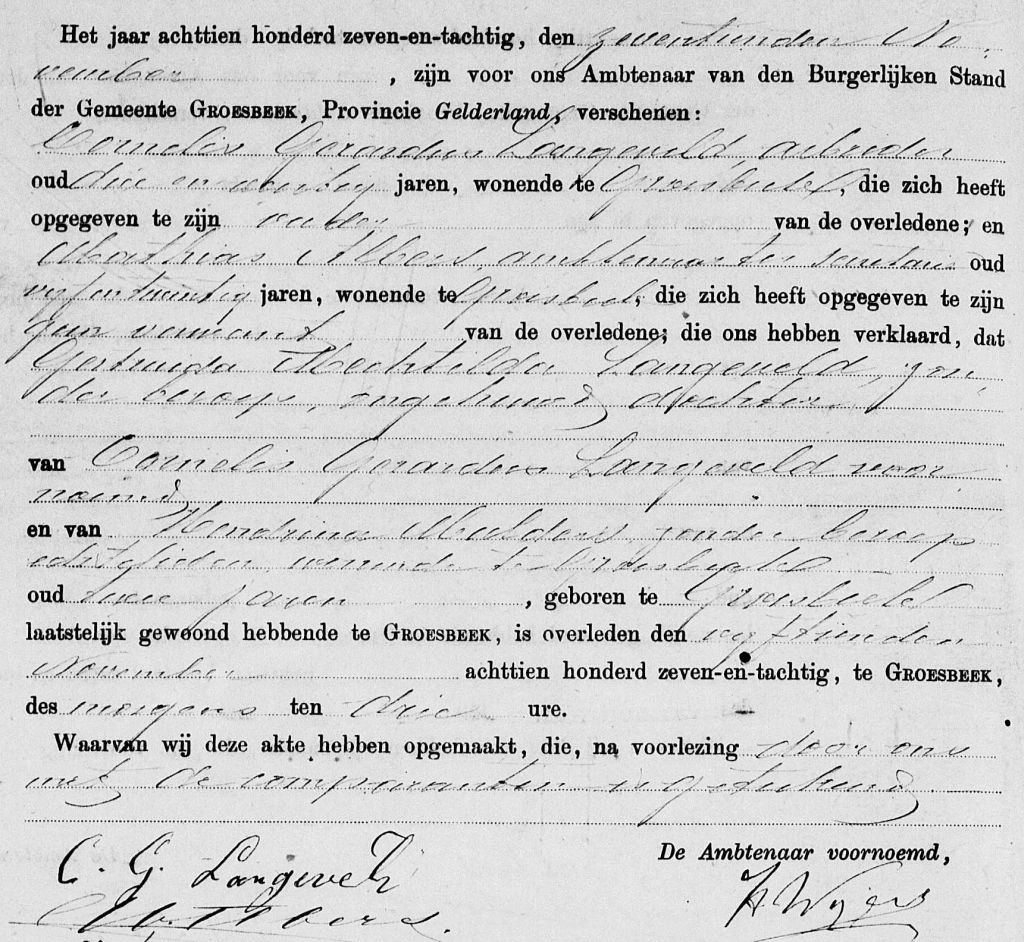 Het jaar achttien honderd zeven-en-tachtig, den zeventienden No
vember , zijn voor ons Ambtenaar van den Burgerlijken Stand
der Gemeente GROESBEEK, Provincie Gelderland, verschenen:
Cornelis Gerardus Langeveld, arbeider
oud drie en veertig jaren, wonende te Groesbeek, die zich heeft
opgegeven te zijn vader van de overledene; en
Mathias Albers, ambtenaar ter secretarie oud
vijfentwintig jaren, wonende te Groesbeek, die zich heeft opgegeven te zijn
geen verwant van de overledene; die ons hebben verklaard, dat
Gertruida Mechtilda Langeveld, zon
der beroep, ongehuwd, dochter
van Cornelis Gerardus Langeveld voor
noemd
en van Hendrina Mulders zonder beroep
echtelieden, wonende te Groesbeek
oud twee jaren , geboren te Groesbeek
laatstelijk gewoond hebbende te GROESBEEK, is overleden den vijftienden
November achttien honderd zeven-en-tachtig, te GROESBEEK,
des morgens ten drie ure.
Waarvan wij deze akte hebben opgemaakt, die, na voorlezing door ons
met de comparanten is geteekend
De Ambtenaar voornoemd,
C. G. Langeveld
M. Albers.